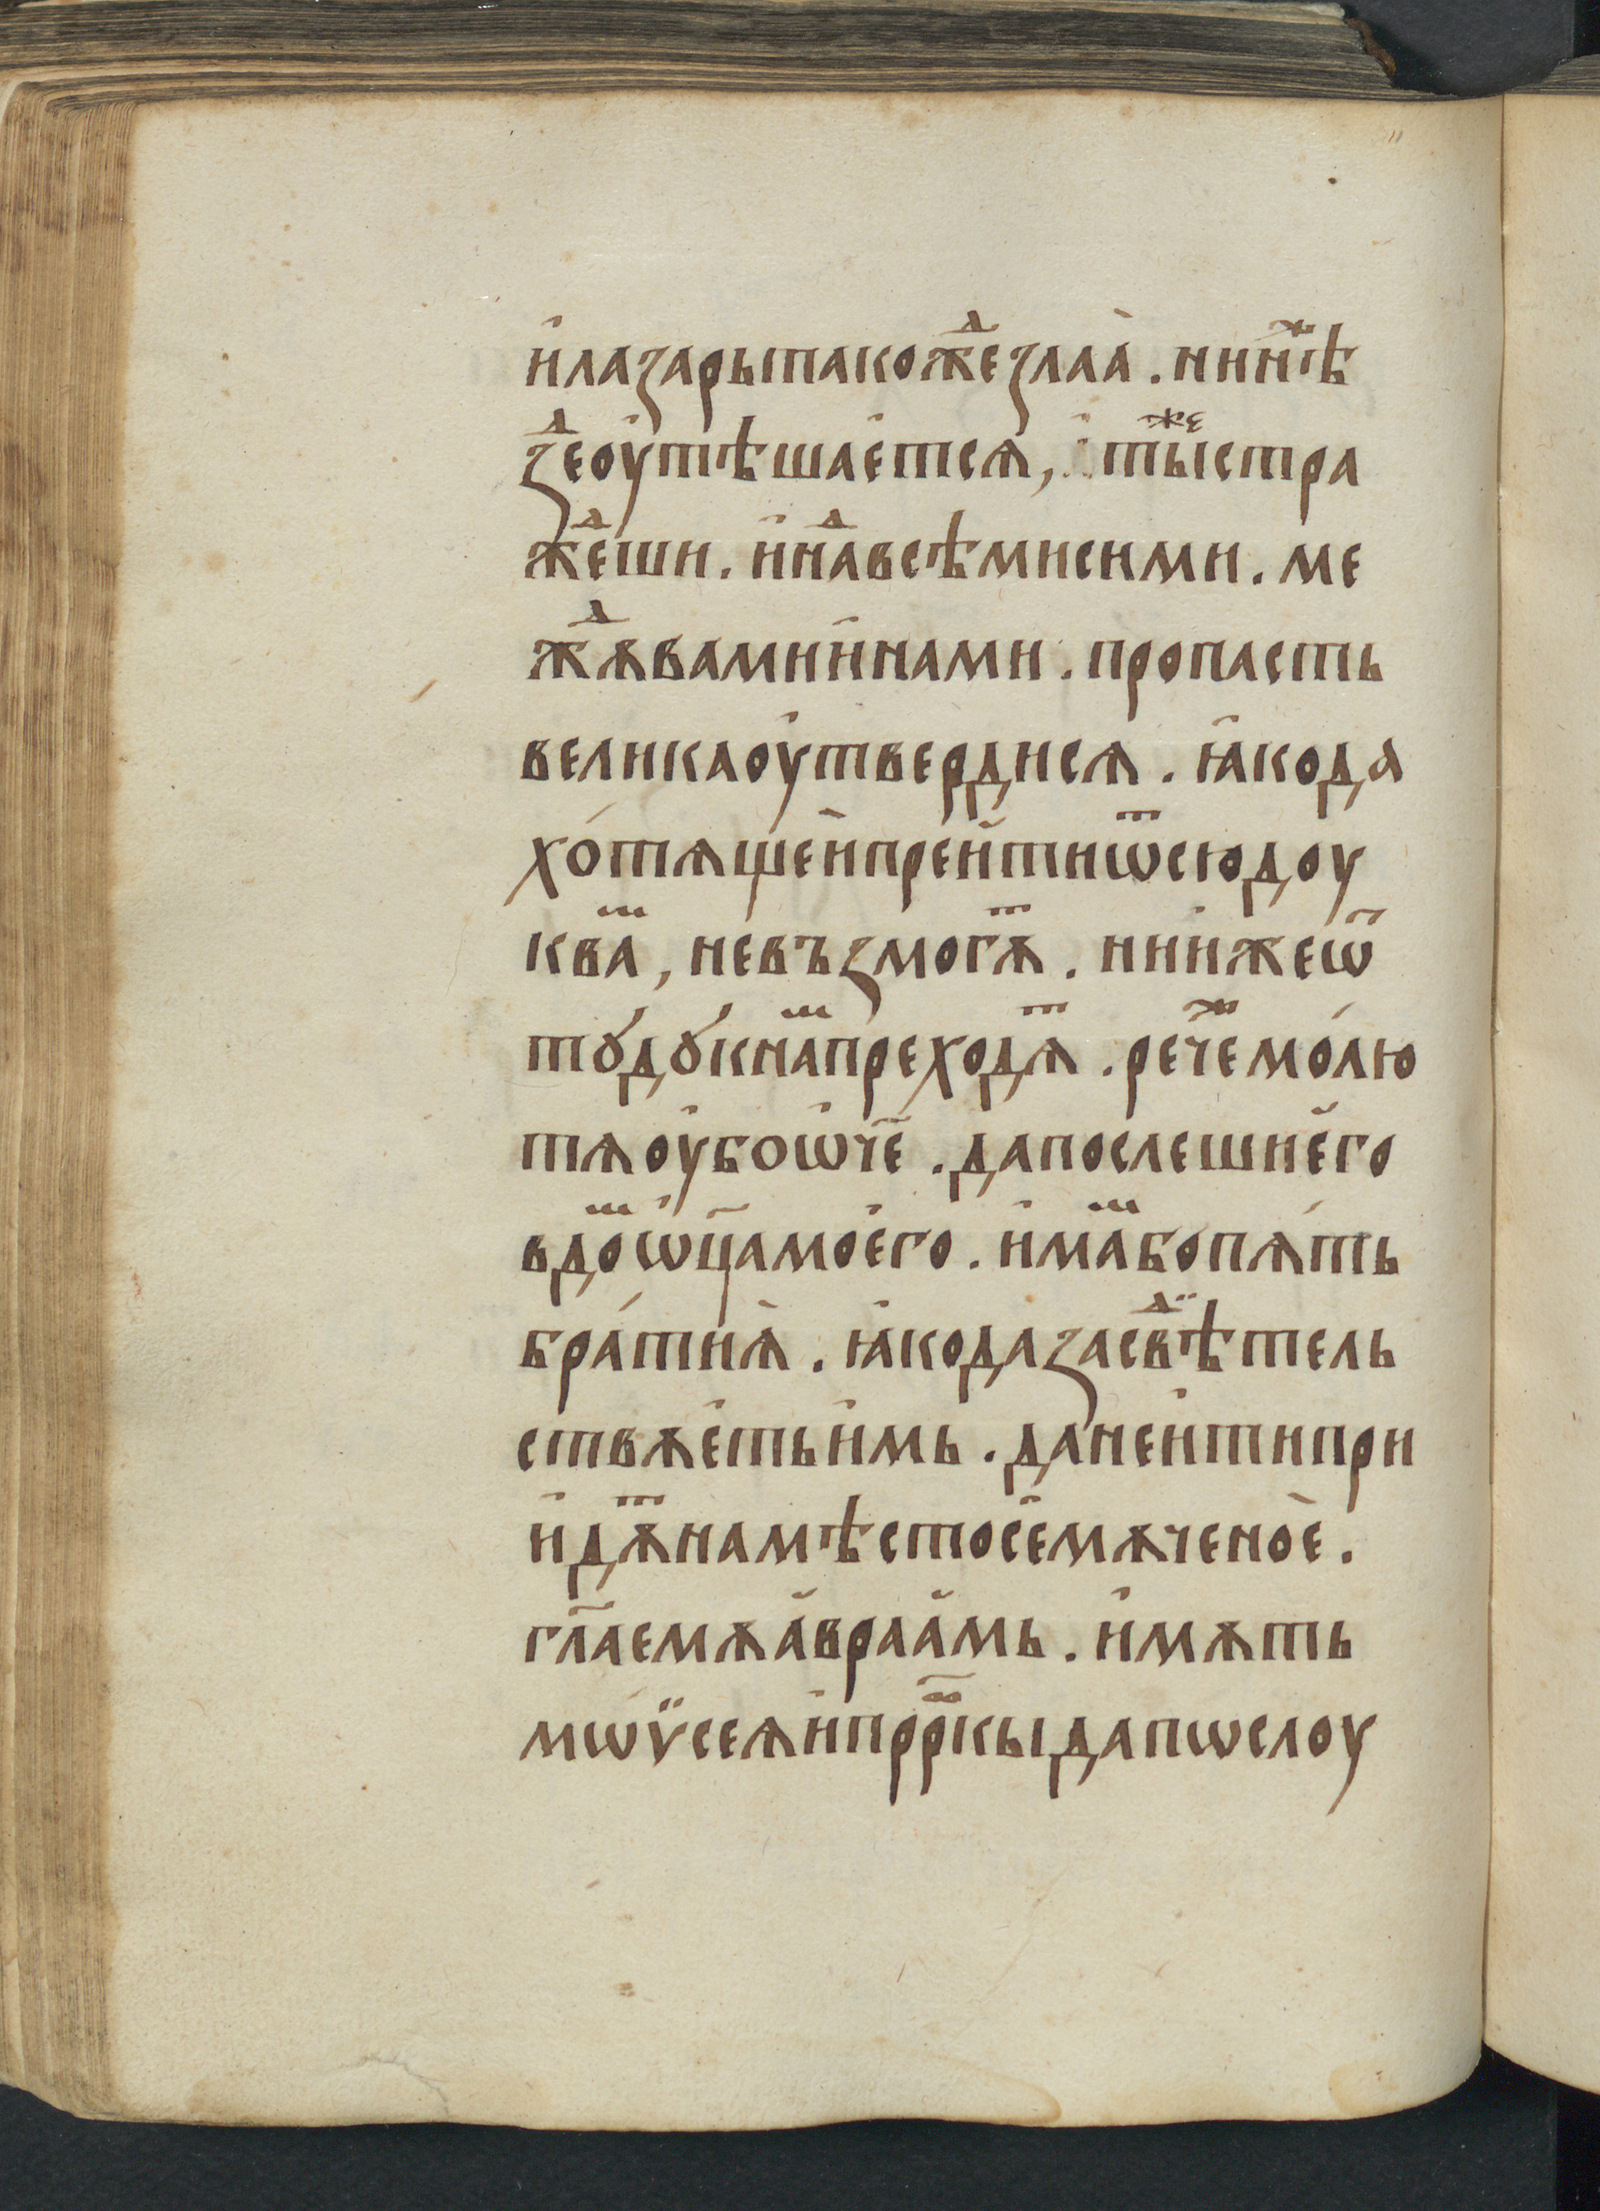 и҆лаꙁарьтакожеⷣꙁлаа̀. нинꙗ҃ѣⷤ
ꙁеⷣоу҆тѣшае҆тсѧ, і҆ ты́ⷤⷷстра
же́ⷣши. и҆наⷣвсѣмисими. ме
жⷣѫвамии҆нами. пропасть
великаоу҆твердисѧ. ꙗ҆кода
хо́тѧщеи҆преи҆тиѿсюдоу
кваⷲ, невъꙁмогѫⷮ. нии҆жеѿ
тꙋ́дꙋ́кнаⷲпреходѧⷮ. речеⷤмо́лю
тѧоу҆боѡ҆ч҃е. дапослешие҆го
вдоⷲѡ҆ц҃амое҆го. и҆маⷨбопѧ́ть
бра́тиѧ̀. ꙗ҆кодаꙁасвⷣѣтель
ствѫе҆тьи҆мь. данеи҆типри
и҆дѫⷮнамѣстосе҆мѫчено̀е.
гл҃аемѫа҆враа҆мь. и҆мѫть
мѡѷсеѧи҆прⷪ҇р҃кыдапѡслоу